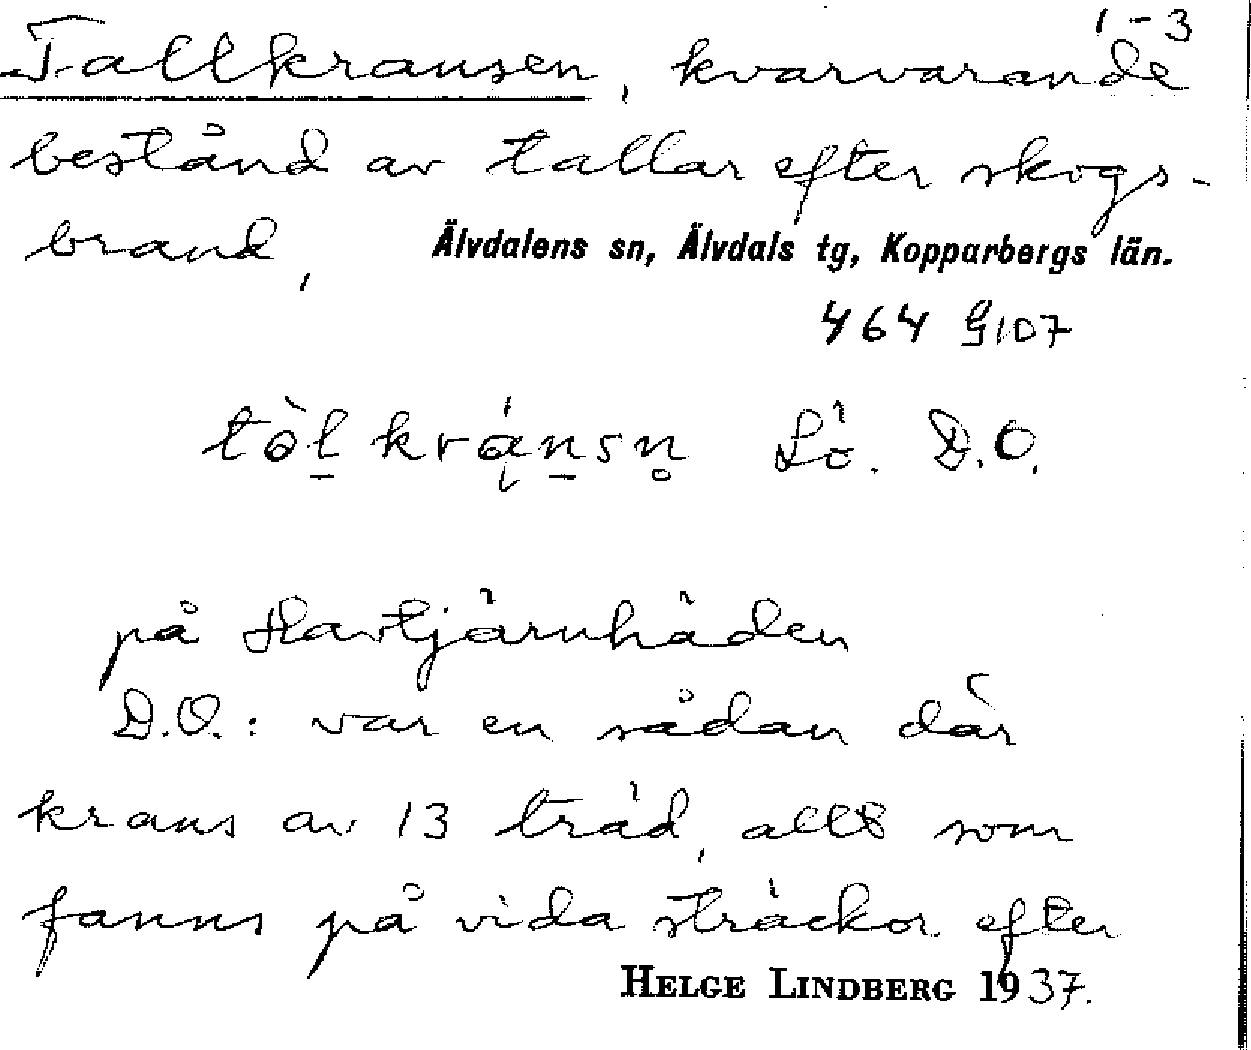 1-3
Tallkransen, kvarvarande
bestånd av tallar efter skogs-
brand, Älvdalens sn, Älvdals tg, Kopparbergs län.
464 G 107
Lö. D.O.
på Havtjärnhäden
D.O.: var en sådan där
krans av 13 träd, allt som
fanns på vida sträckor efter
HELGE LINDBERG 1937.